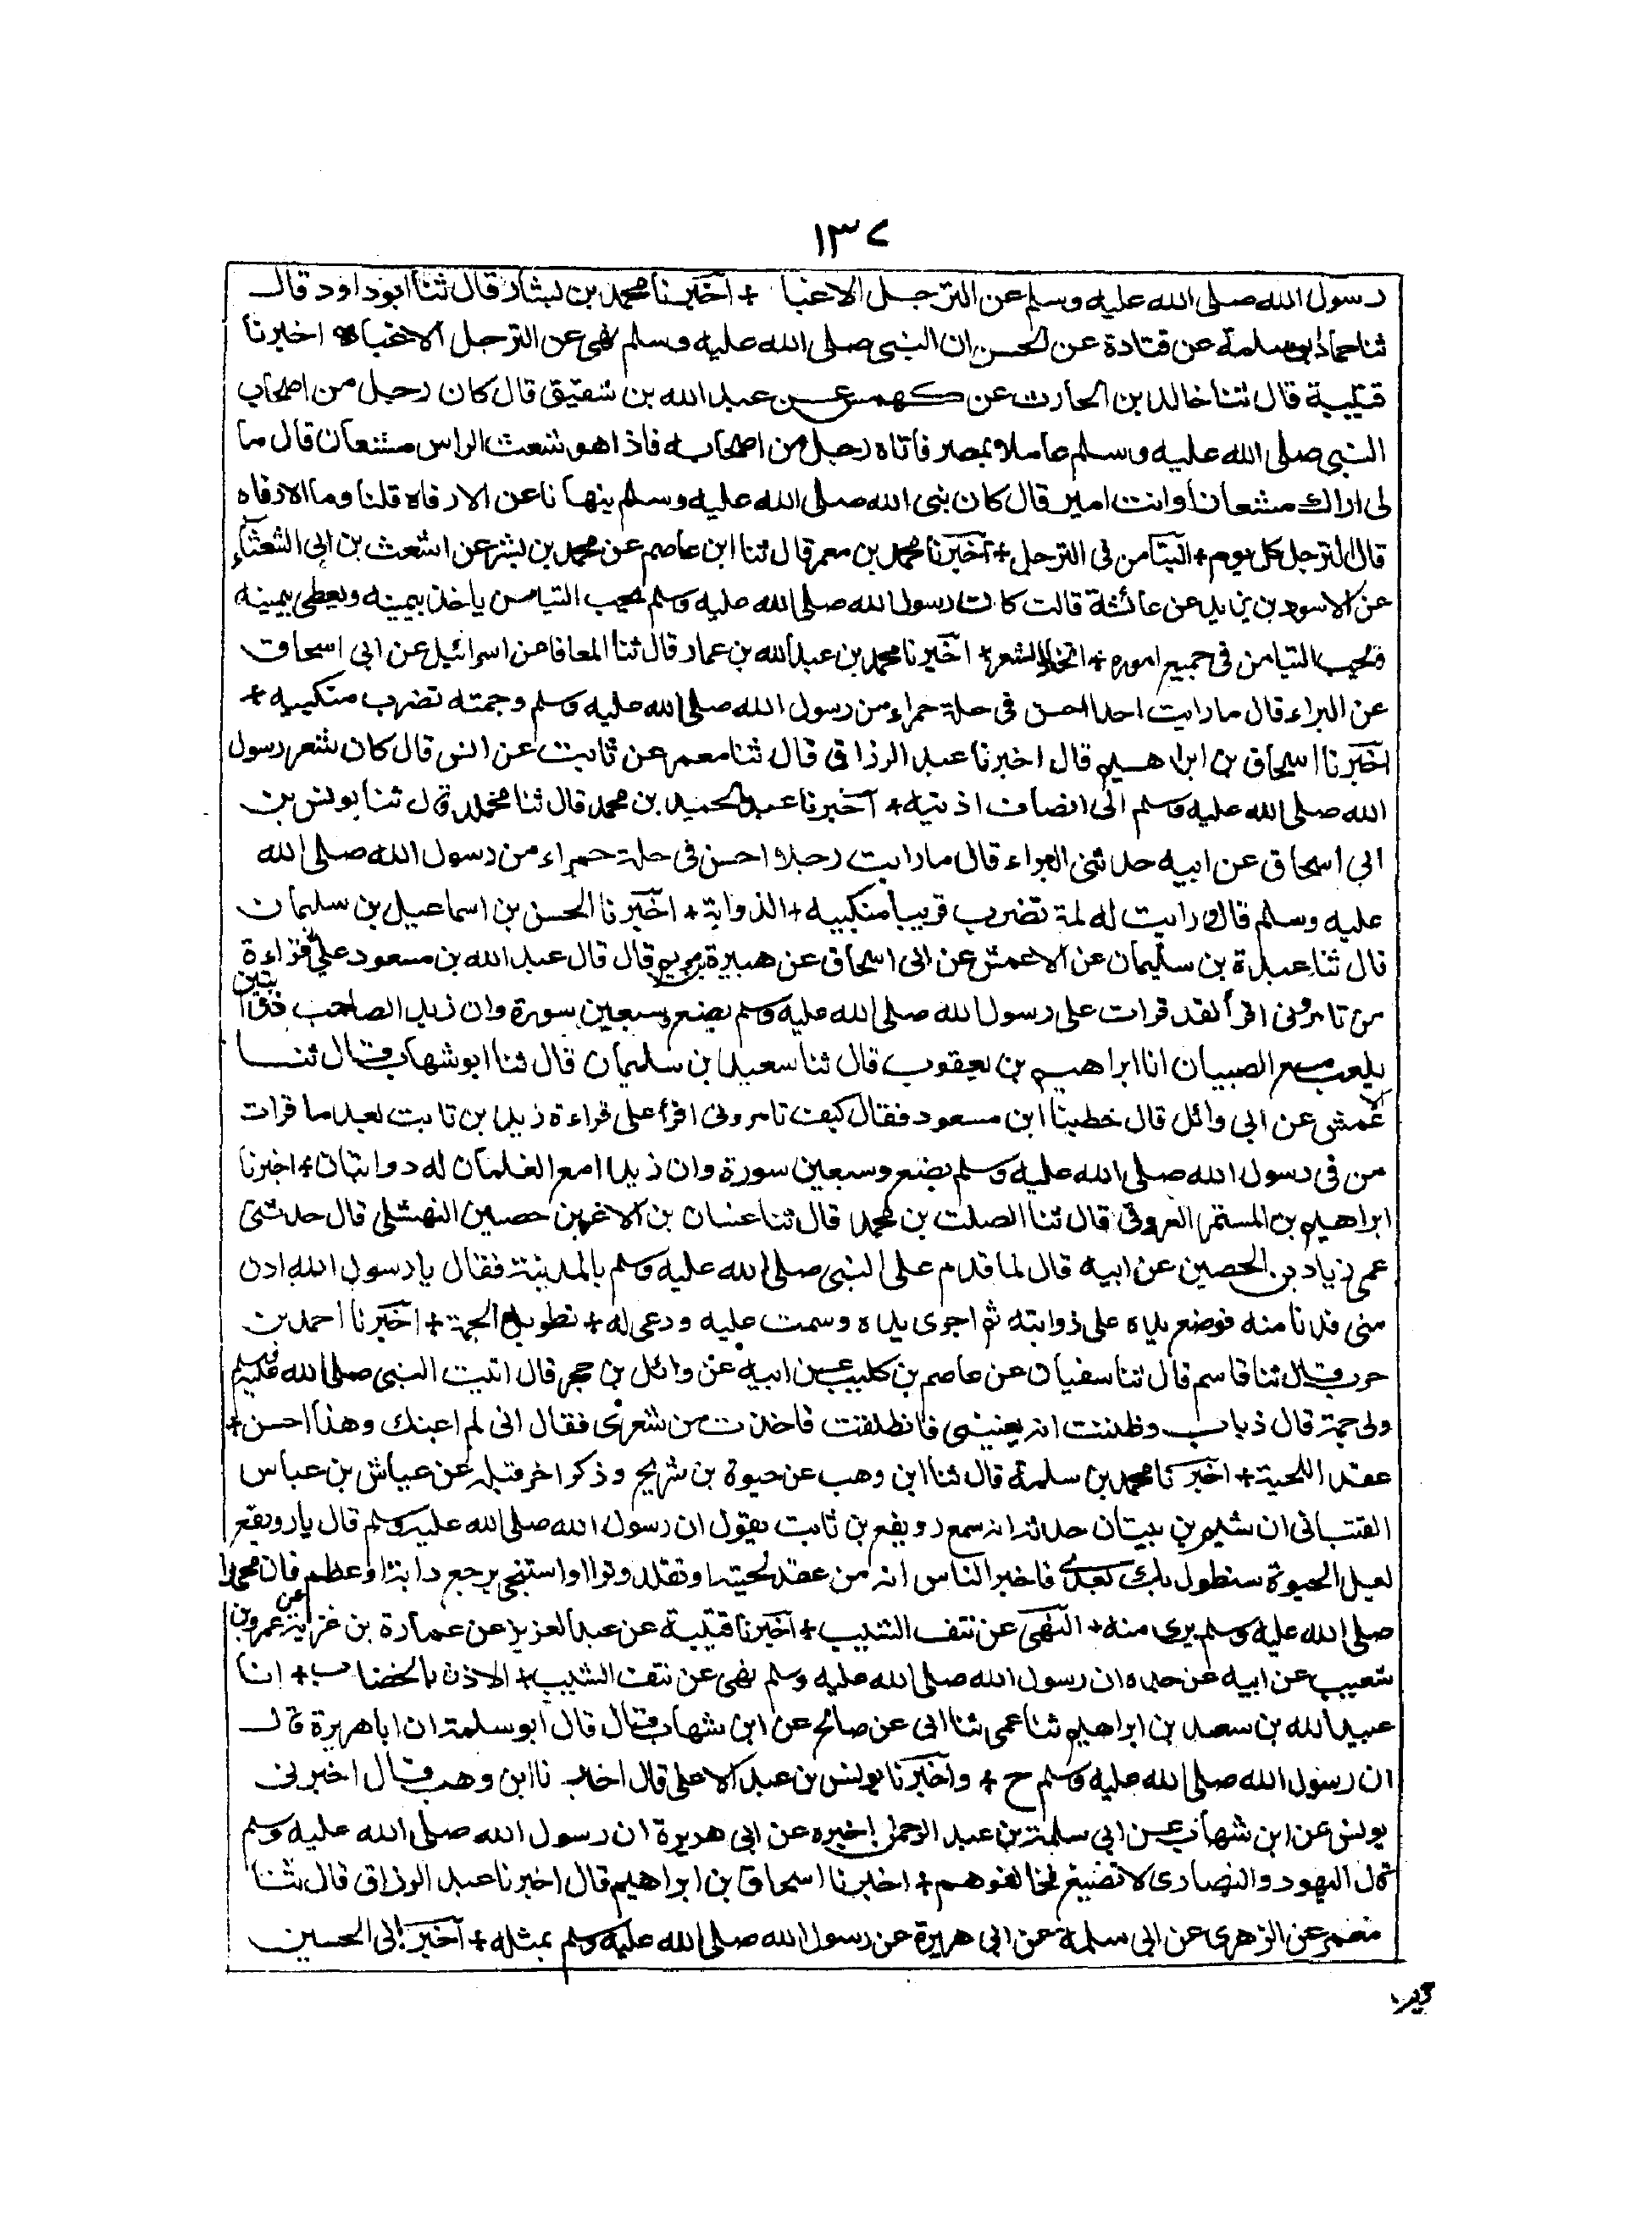 ١٣٧
رسول الله صلى الله عليه وسلم عن الترجل الا غبا + اخبرنا محمد بن بشار قال ثنا ابو داود قال
ثنا حماد بن سلمة عن قتادة عن الحسن ان النبي صلى الله عليه وسلم نهى عن الترجل الا غبا + اخبرنا
قتيبة قال ثنا خالد بن الحارث عن كهمس عن عبد الله بن شقيق قال كان رجل من اصحاب
النبي صلى الله عليه وسلم عاملا بمصر فاتاه رجل من اصحابه فاذا هو شعث الراس مشعان قال ما
لى اراك مشعانا وانت امير قال كان نبى الله صلى الله عليه وسلم ينها نا عن الارفاه قلنا وما الارفاه
قال الترجل كل يوم + التيامن فى الترجل + اخبرنا محمد بن معمر قال ثنا ابن عاصم عن محمد بن بشر عن اشعث بن ابى الشعثاء
عن الاسود بن يزيد عن عائشة قالت كانت رسول الله صلى الله عليه وسلم يحب التيامن ياخذ بيمينه ويعطى بيمينه
ويحب التيامن فى جميع اموره + اتخاذ الشعر + اخبرنا محمد بن عبد الله بن عمار قال ثنا المعافا عن اسرائيل عن ابى اسحاق
عن البراء قال ما رايت احدا احسن فى حلة حمراء من رسول الله صلى الله عليه وسلم وجمته تضرب منكبيه +
اخبرنا اسحاق بن ابراهيم قال اخبرنا عبد الرزاق قال ثنا معمر عن ثابت عن انس قال كان شعر رسول
الله صلى الله عليه وسلم الى انصاف اذنيه + اخبرنا عبد الحميد بن محمد قال ثنا مخلد قال ثنا يونس بن
ابى اسحاق عن ابيه حدثنى البراء قال ما رايت رجلا احسن فى حلة حمراء من رسول الله صلى الله
عليه وسلم قال ورايت له لمة تضرب قريبا منكبيه + الذوابة + اخبرنا الحسن بن اسماعيل بن سليمان
قال ثنا عبدة بن سليمان عن الاعمش عن ابى اسحاق عن هبيرة بن يريم قال قال عبد الله بن مسعود على قراءة
من تامرونى اقرأ لقد قرات على رسول الله صلى الله عليه وسلم بضع وسبعين سورة وان زيدا لصاحب ذوابتين
يلعب مع الصبيان انا ابراهيم بن يعقوب قال ثنا سعيد بن سليمان قال ثنا ابو شهاب قال ثنا
الاعمش عن ابى وائل قال خطبنا ابن مسعود فقال كيف تامرونى اقرأ على قراءة زيد بن ثابت بعد ما قرات
من فى رسول الله صلى الله عليه وسلم بضع وسبعين سورة وان زيدا مع الغلمان له ذوابتان + اخبرنا
ابراهيم بن المستمر العروقى قال ثنا الصلت بن محمد قال ثنا غسان بن الاغر بن حصين النهشلى قال حدثنى
عمى زياد بن الحصين عن ابيه قال لما قدم على النبى صلى الله عليه وسلم بالمدينة فقال يا رسول الله ادن
منى فدنا منه فوضع يده على ذوابته ثم اجرى يده وسمت عليه ودعى له + تطويل الجمة + اخبرنا احمد بن
حرب قال ثنا قاسم قال ثنا سفيان عن عاصم بن كليب عن ابيه عن وائل بن حجر قال اتيت النبى صلى الله عليه وسلم
ولى جمة قال ذباب وظننت انه يعنينى فانطلقت فاخذت من شعرى فقال انى لم اعنك وهذا احسن +
عقد اللحية + اخبرنا محمد بن سلمة قال ثنا ابن وهب عن حيوة بن شريح وذكر اخر قبله عن عياش بن عباس
القتبانى ان شيم بن بيتان حدثه انه سمع رويفع بن ثابت يقول ان رسول الله صلى الله عليه وسلم قال يا رويفع
لعل الحيوة ستطول بك بعدى فاخبر الناس انه من عقد لحيته او تقلد وترا او استنجى برجيع دابة او عظم فان محمدا
صلى الله عليه وسلم برى منه + النهى عن نتف الشيب + اخبرنا قتيبة عن عبد العزيز عن عمارة بن غزية عن عمرو بن
شعيب عن ابيه عن جده ان رسول الله صلى الله عليه وسلم نهى عن نتف الشيب + الاذن بالخضاب + انا
عبيد الله بن سعد بن ابراهيم ثنا عمى ثنا ابى عن صالح عن ابن شهاب قال قال ابو سلمة ان ابا هريرة قال
ان رسول الله صلى الله عليه وسلم ح + واخبرنا يونس بن عبد الاعلى قال اخبرنا ابن وهب قال اخبرنى
يونس عن ابن شهاب عن ابى سلمة بن عبد الرحمن اخبره عن ابى هريرة ان رسول الله صلى الله عليه وسلم
قال اليهود والنصارى لا تضبغ فخالفوهم + اخبرنا اسحاق بن ابراهيم قال اخبرنا عبد الرزاق قال ثنا
معمر عن الزهرى عن ابى سلمة عن ابى هريرة عن رسول الله صلى الله عليه وسلم بمثله + اخبر ابى الحسين